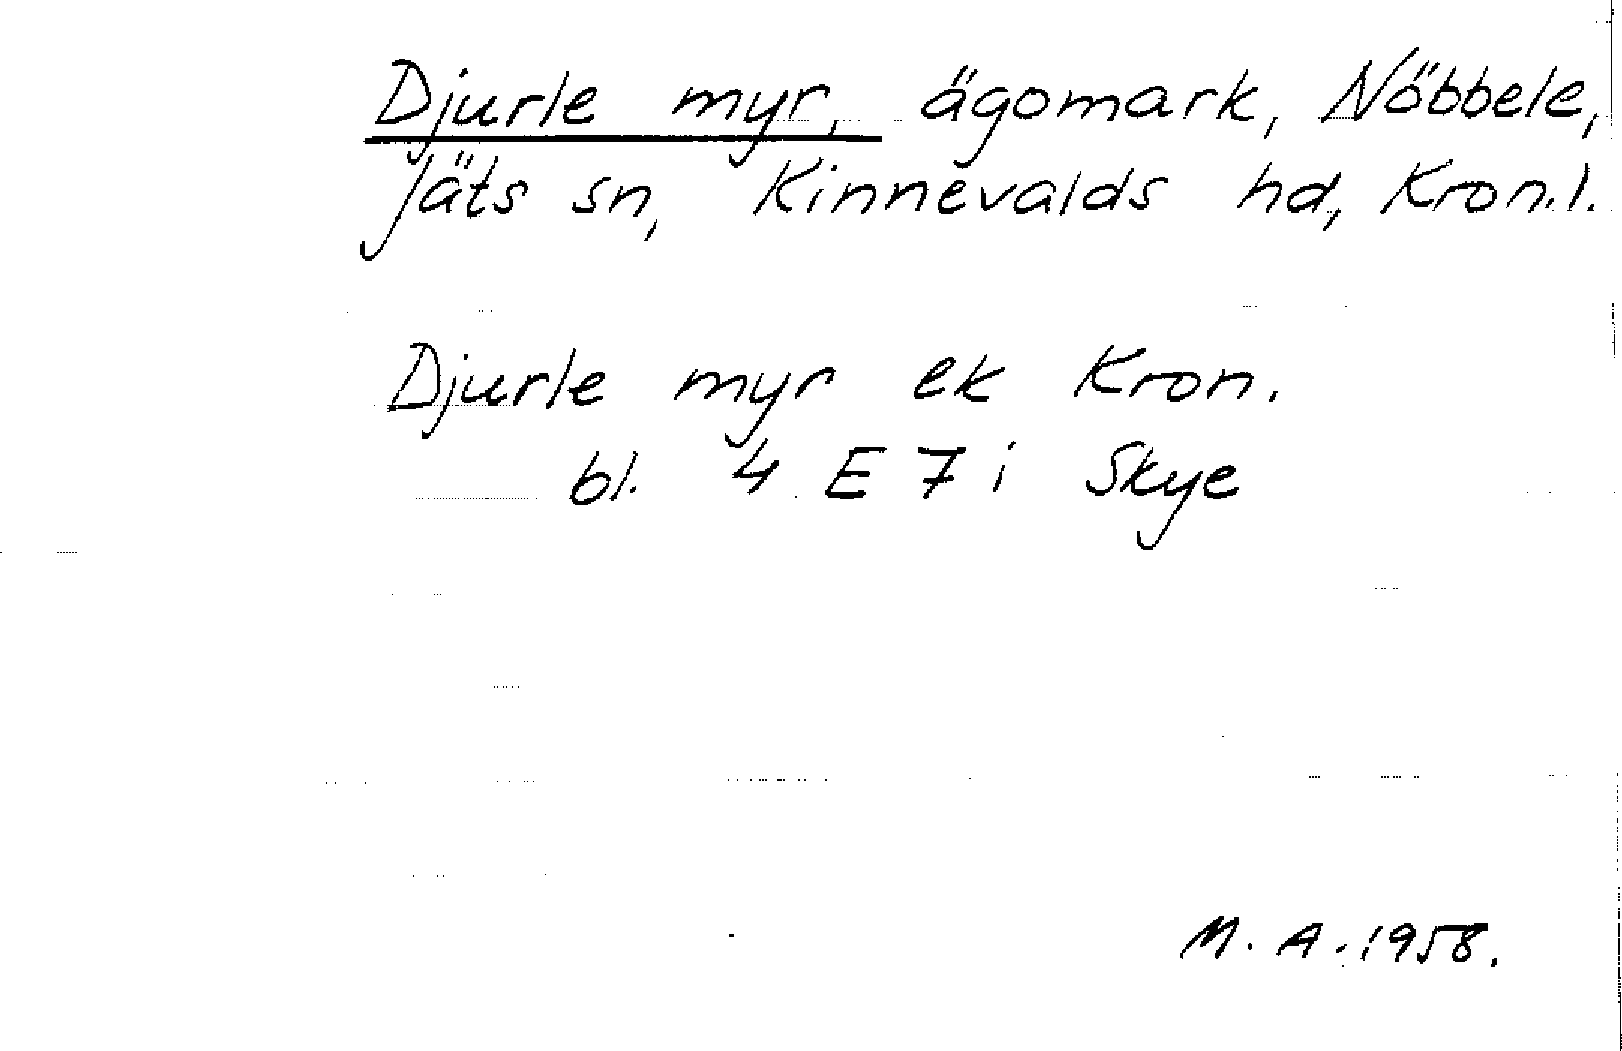 Djurle myr, ägomark, Nöbbele,
Jäts sn, Kinnevalds hd, Kron.l.
Djurle myr ek Kron.
bl. 4 E 7 i Skye
M. A. 1958.